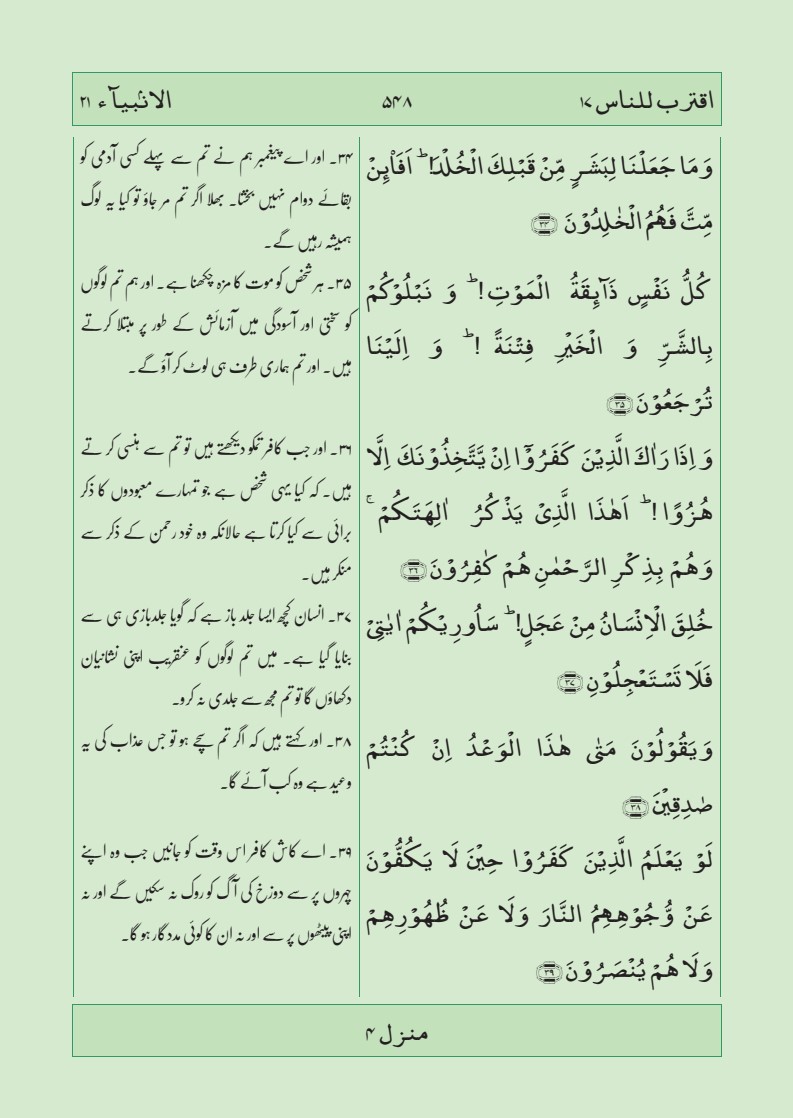 اقترب للناس ۱۷ ۵۴۸ الانبیآء ۲۱
وَ مَا جَعَلْنَا لِبَشَرٍ مِّنْ قَبْلِكَ الْخُلْدَ ؕ اَفَا۠ئِنْ
مِّتَّ فَهُمُ الْخٰلِدُوْنَ ﴿۳۴﴾
كُلُّ نَفْسٍ ذَآئِقَةُ الْمَوْتِ ؕ وَ نَبْلُوْكُمْ
بِالشَّرِّ وَ الْخَيْرِ فِتْنَةً ؕ وَ اِلَيْنَا
تُرْجَعُوْنَ ﴿۳۵﴾
وَ اِذَا رَاٰكَ الَّذِيْنَ كَفَرُوْۤا اِنْ يَّتَّخِذُوْنَكَ اِلَّا
هُزُوًا ؕ اَهٰذَا الَّذِىْ يَذْكُرُ اٰلِهَتَكُمْ ۚ
وَهُمْ بِذِكْرِ الرَّحْمٰنِ هُمْ كٰفِرُوْنَ ﴿۳۶﴾
خُلِقَ الْاِنْسَانُ مِنْ عَجَلٍ ؕ سَاُورِيْكُمْ اٰيٰتِىْ
فَلَا تَسْتَعْجِلُوْنِ ﴿۳۷﴾
وَ يَقُوْلُوْنَ مَتٰى هٰذَا الْوَعْدُ اِنْ كُنْتُمْ
صٰدِقِيْنَ ﴿۳۸﴾
لَوْ يَعْلَمُ الَّذِيْنَ كَفَرُوْا حِيْنَ لَا يَكُفُّوْنَ
عَنْ وُّجُوْهِهِمُ النَّارَ وَلَا عَنْ ظُهُوْرِهِمْ
وَلَا هُمْ يُنْصَرُوْنَ ﴿۳۹﴾
۳۴۔ اور اے پیغمبر ہم نے تم سے پہلے کسی آدمی کو
بقائے دوام نہیں بخشا۔ بھلا اگر تم مر جاؤ تو کیا یہ لوگ
ہمیشہ رہیں گے۔
۳۵۔ ہر شخص کو موت کا مزہ چکھنا ہے۔ اور ہم تم لوگوں
کو سختی اور آسودگی میں آزمائش کے طور پر مبتلا کرتے
ہیں۔ اور تم ہماری طرف ہی لوٹ کر آؤ گے۔
۳۶۔ اور جب کافر تمکو دیکھتے ہیں تو تم سے ہنسی کرتے
ہیں۔ کہ کیا یہی شخص ہے جو تمہارے معبودوں کا ذکر
برائی سے کیا کرتا ہے حالانکہ وہ خود رحمن کے ذکر سے
منکر ہیں۔
۳۷۔ انسان کچھ ایسا جلد باز ہے کہ گویا جلدبازی ہی سے
بنایا گیا ہے۔ میں تم لوگوں کو عنقریب اپنی نشانیاں
دکھاؤں گا تو تم مجھ سے جلدی نہ کرو۔
۳۸۔ اور کہتے ہیں کہ اگر تم سچے ہو تو جس عذاب کی یہ
وعید ہے وہ کب آئے گا۔
۳۹۔ اے کاش کافر اس وقت کو جانیں جب وہ اپنے
چہروں پر سے دوزخ کی آگ کو روک نہ سکیں گے اور نہ
اپنی پیٹھوں پر سے اور نہ ان کا کوئی مددگار ہو گا۔
منزل ۴